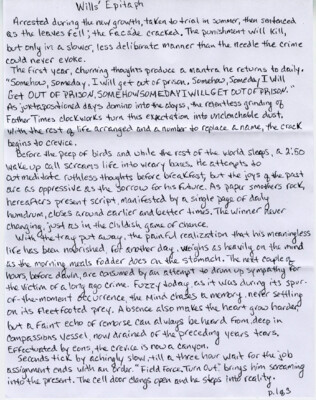 Wills' Epitaph
Arrested during the new growth, taken to trial in summer, then sentenced
as the leaves fell; the facade cracked. The punishment will kill,
but only in a slower, less deliberate manner than the needle the crime
could never evoke.
The first year, churning thoughts produce a mantra he returns to daily.
"Somehow, Someday, I will get out of prison. Somehow, Someday I Will
Get OUT OF PRISON. SOMEHOWSOMEDAYIWILLGETOUTOFPRISON."
As juxtapositioned days domino into the abyss, the relentless grinding of
Father Times clockworks turn this expectation into unclenchable dust.
With the rest of life arranged and a number to replace a name, the crack
begins to crevice.
Before the peep of birds and while the rest of the world sleeps, a 2:50
wake up call screams life into weary bones. He attempts to
outmeditate ruthless thoughts before breakfast, but the joys of the past
are as oppressive as the sorrow for his future. As paper smothers rock,
hereafters present script, manifested by a single page of daily
humdrum, closes around earlier and better times. The winner never
changing, just as in the childish game of chance.
With the tray put away, the painful realization that his meaningless
life has been nourished for another day, weighs as heavily on the mind
as the morning meals fodder does on the stomach. The next couple of
hours, before dawn, are consumed by an attempt to drum up sympathy for
the victim of a long ago crime. Fuzzy today, as it was during its spur-
of-the-moment occurrence, the mind chases a memory, never settling
on its fleetfooted prey. Absence also makes the heart grow harder,
but a faint echo of remorse can always be heard from deep in
compassions vessel, now drained of the preceding years tears.
Effectuated by eons, the crevice is now a canyon.
Seconds tick by achingly slow, till a three hour wait for the job
assignment ends with an order. "Field Force, Turn Out" brings him screaming
into the present. The cell door clangs open and he steps into reality.
p. 1 of 3